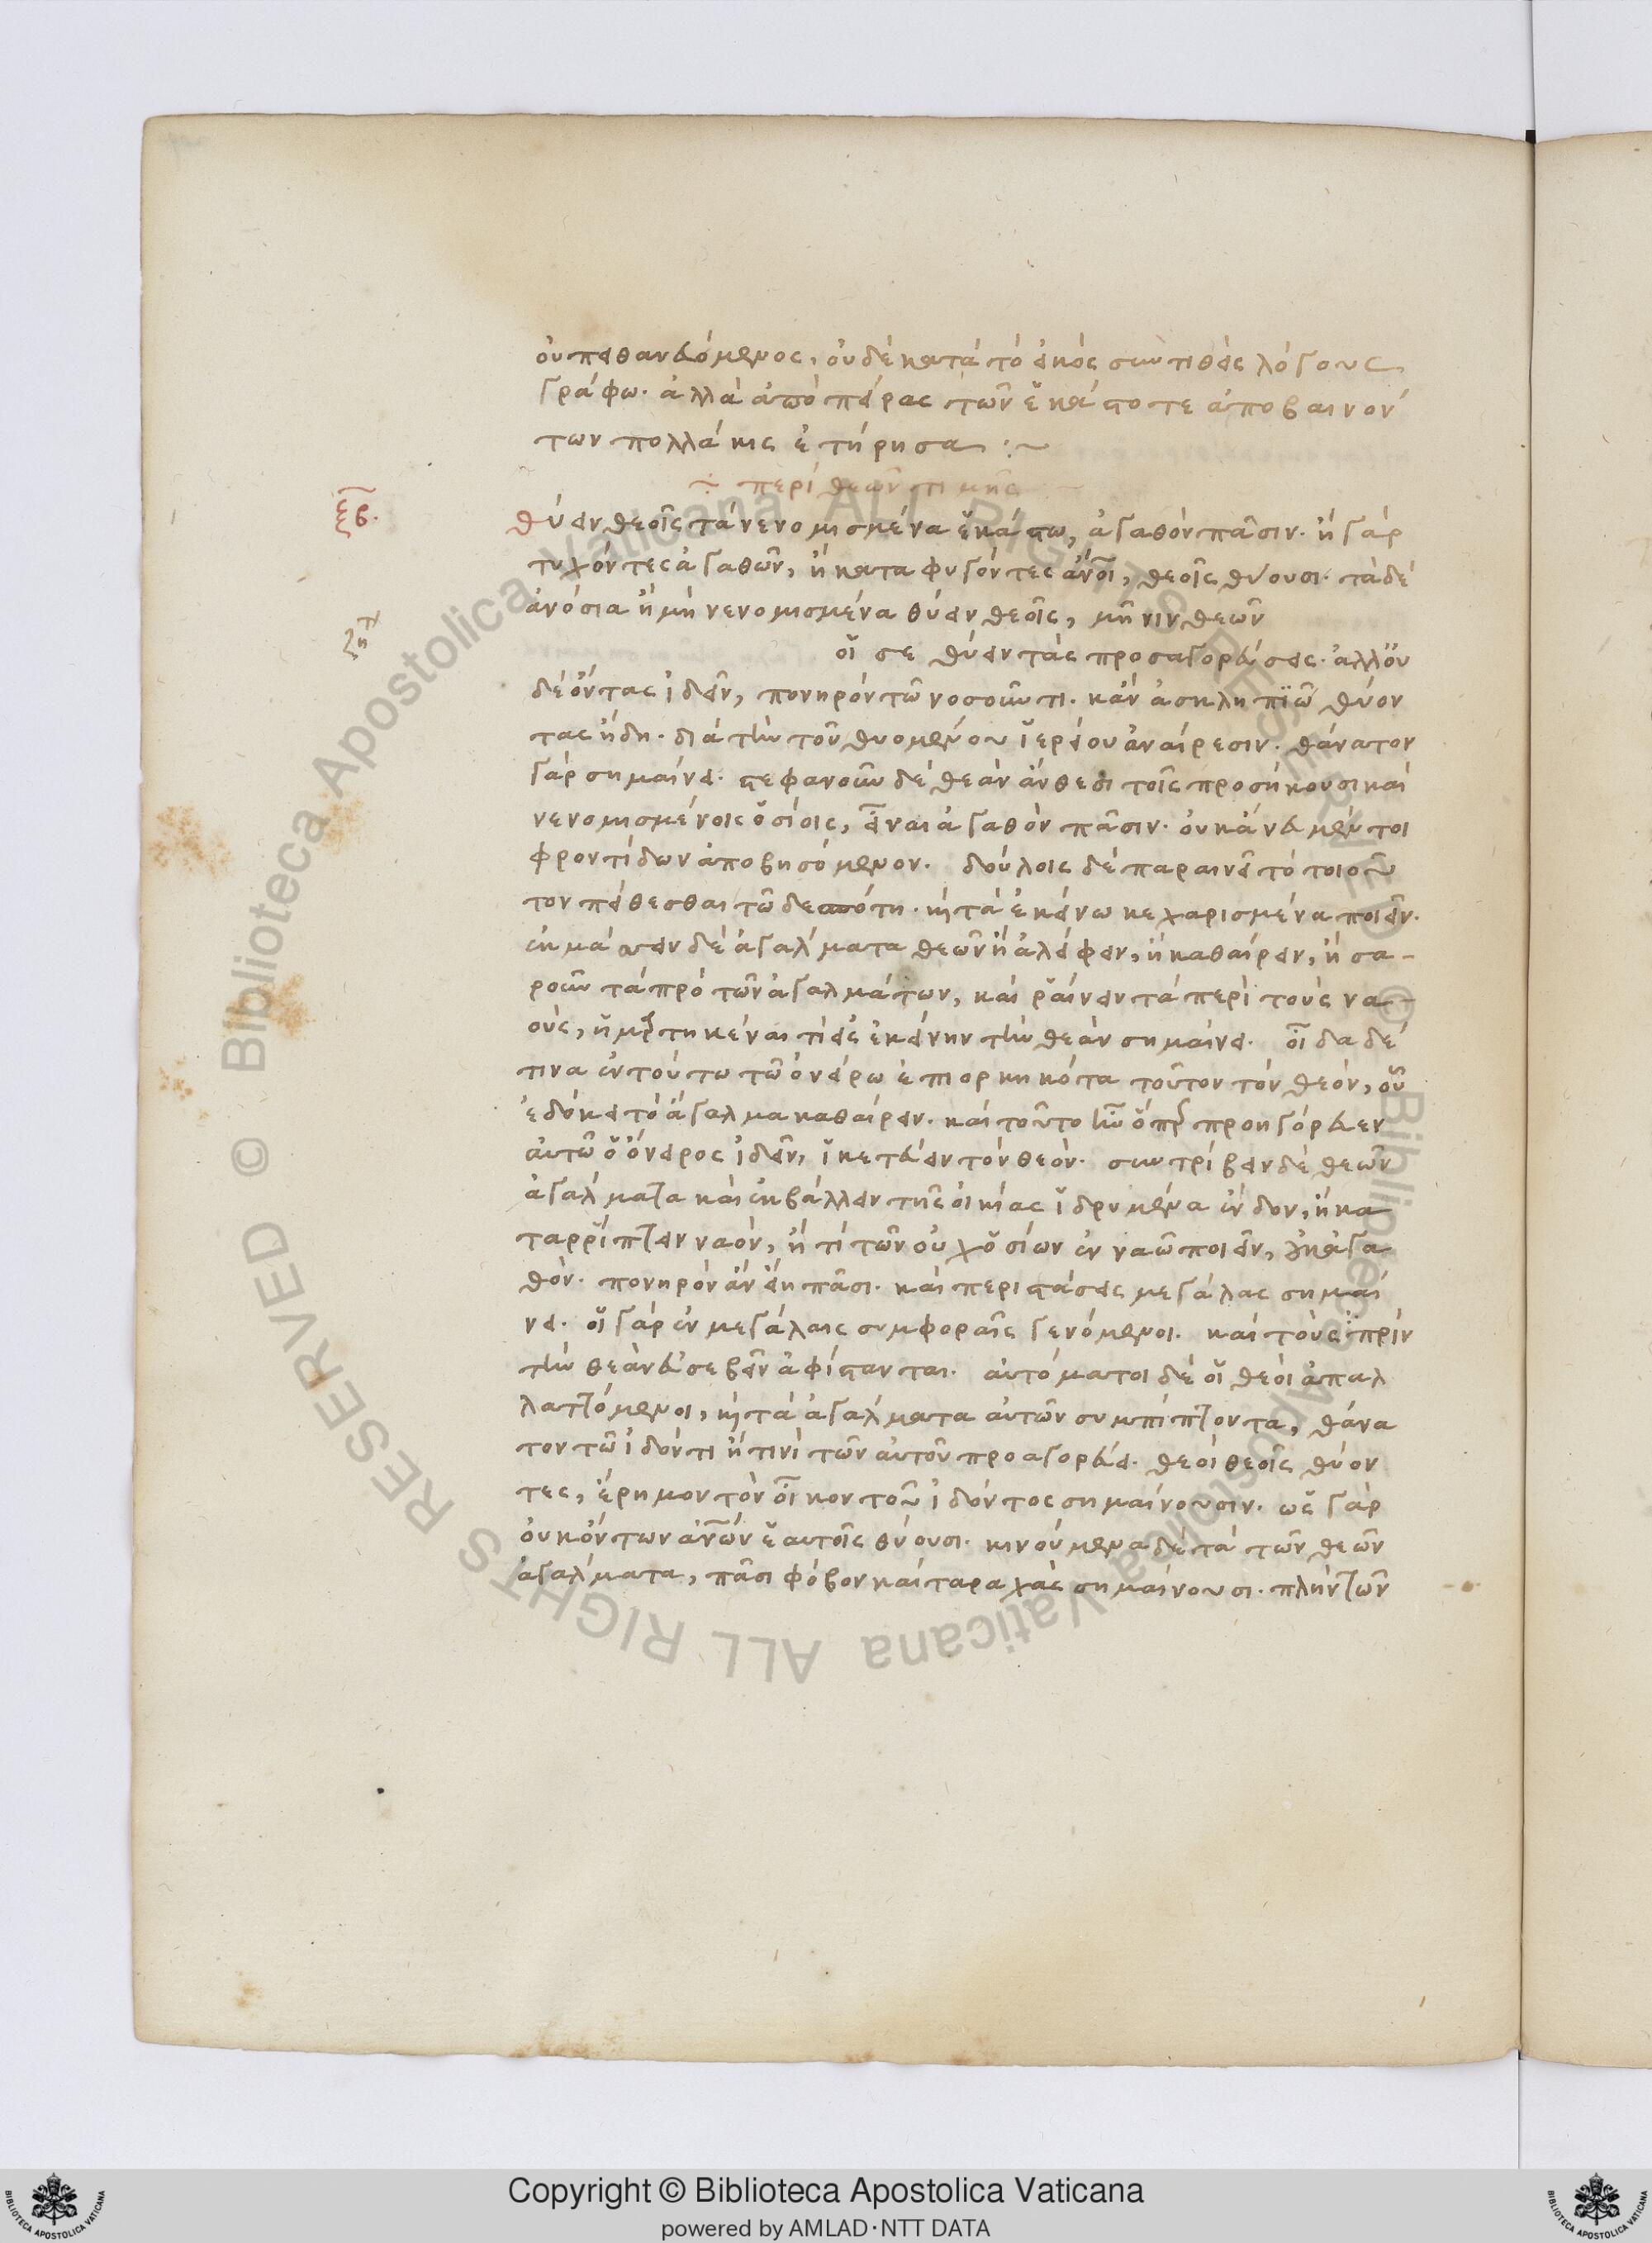 οὐ πειθανευόμενος, οὐδὲ κατὰ τὸ εἰκὸς συντιθεὶς λόγους
γράφω. ἀλλὰ ἀπὸ πείρας τῶν ἑκάστοτε ἀποβαινόν
των πολλάκις ἐτήρησα :~
÷ περὶ θεῶν τιμῆς
ξβ.
θύειν θεοῖς τὰ νενομισμένα ἑκάστω, ἀγαθὸν πᾶσιν. ἢ γὰρ
τυχόντες ἀγαθῶν, ἢ κατα φυγόντες ἄνοι, θεοῖς θύουσι. τὰ δὲ
ἀνόσια ἢ μὴ νενομισμένα θύειν θεοῖς, μῆνιν θεῶν
οἷσ σε θύειν τὰς προσαγορεύσεις. ἄλλου
δὲ ὄντας ἰδεῖν, πονηρὸν τῶ νοσοῦντι. κἂν ἀσκληπϊῶ θύον
τας ἤδη. διὰ τὴν τοῦ θυομένου ἱερείου ἀναίρεσιν. θάνατον
γὰρ σημαίνει. στεφανοῦν δὲ θεὰν ἄνθεσι τοῖς προσήκουσι καὶ
νενομισμένοις ὁσίοις, εἶναι ἀγαθὸν πᾶσιν. οὐκ ἄνευ μέντοι
φροντίδων ἀποβησόμενον. δούλοις δὲ παραινεῖ τὸ τοιοῦ
τον πείθεσθαι τῶ δεσπότη. κ τὰ ἐκείνω κεχαρισμένα ποιεῖν.
ἐκμάσσειν δὲ ἀγάλματα θεῶν ἢ ἀλείφειν, ἢ καθαίρειν, ἢ σα-
ροῦν τὰ πρὸ τῶν ἀγαλμάτων, καὶ ῥαίνειν τὰ περὶ τοὺς να-
οὺς, ἡμρτηκέναι τι εἰς ἐκείνην τὴν θεὰν σημαίνει. οἶδα δέ
τινα ἐν τούτω τῶ ὀνείρω ἐπιορκηκότα τοῦτον τὸν θεὸν, οὗ
ἐδόκει τὸ ἄγαλμα καθαίρειν. καὶ τοῦτο ἦν ὅπερ προηγόρευεν
αὐτῶ ὁ ὄνειρος ἰδεῖν, ἱκετεύειν τὸν θεόν. συντρίβειν δὲ θεῶν
ἀγάλματα καὶ ἐκβάλλειν τῆς οἰκίας ἱδρυμένα ἔνδον, ἢ κα
ταρρίπτειν ναὸν, ἤ τι τῶν οὐχ ὁσίων ἐν ναῶ ποιεῖν, οὐκ ἀγα
θόν. πονηρὸν ἂν εἴη πᾶσι. καὶ περιστάσεις μεγάλας σημαί
νει. οἱ γὰρ ἐν μεγάλαις συμφοραῖς γενόμενοι. καὶ τοὺς πρὶν
τὴν θεὰν εὐσεβεῖν ἀφίστανται. αὐτόματοι δὲ οἱ θεοὶ ἀπαλ
λαττόμενοι, κ τὰ ἀγάλματα αὐτῶν συμπίπτοντα, θάνα
τον τῶ ἰδόντι ἢ τινὶ τῶν αὐτοῦ προαγορεύει. θεοὶ θεοῖς θύον
τες, ἔρημον τὸν οἶκον τοῦ ἰδόντος σημαίνουσιν. ὡς γὰρ
οὐκ ὄντων ἀνῶν ἑαυτοῖς θύουσι. κινούμενα δὲ τὰ τῶν θεῶν
ἀγάλματα, πᾶσι φόβον καὶ ταραχὰς σημαίνουσι. πλὴν τῶν
Copyright © Biblioteca Apostolica Vaticana
powered by AMLAD·NTT DATA
Biblioteca Apostolica Vaticana ALL RIGHTS RESERVED ©
Biblioteca Apostolica Vaticana ALL RIGHTS RESERVED ©